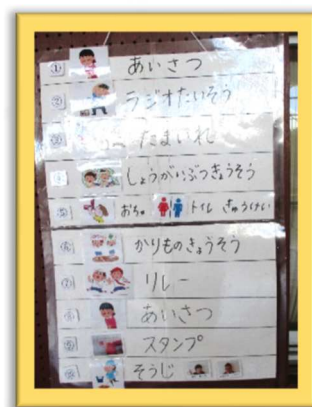 ① あいさつ
② ラジオたいそう
③ たまいれ
④ しょうがいぶつきょうそう
⑤ おちゃ トイレ きゅうけい
⑥ かりものきょうそう
⑦ リレー
⑧ あいさつ
⑨ スタンプ
⑩ そうじ